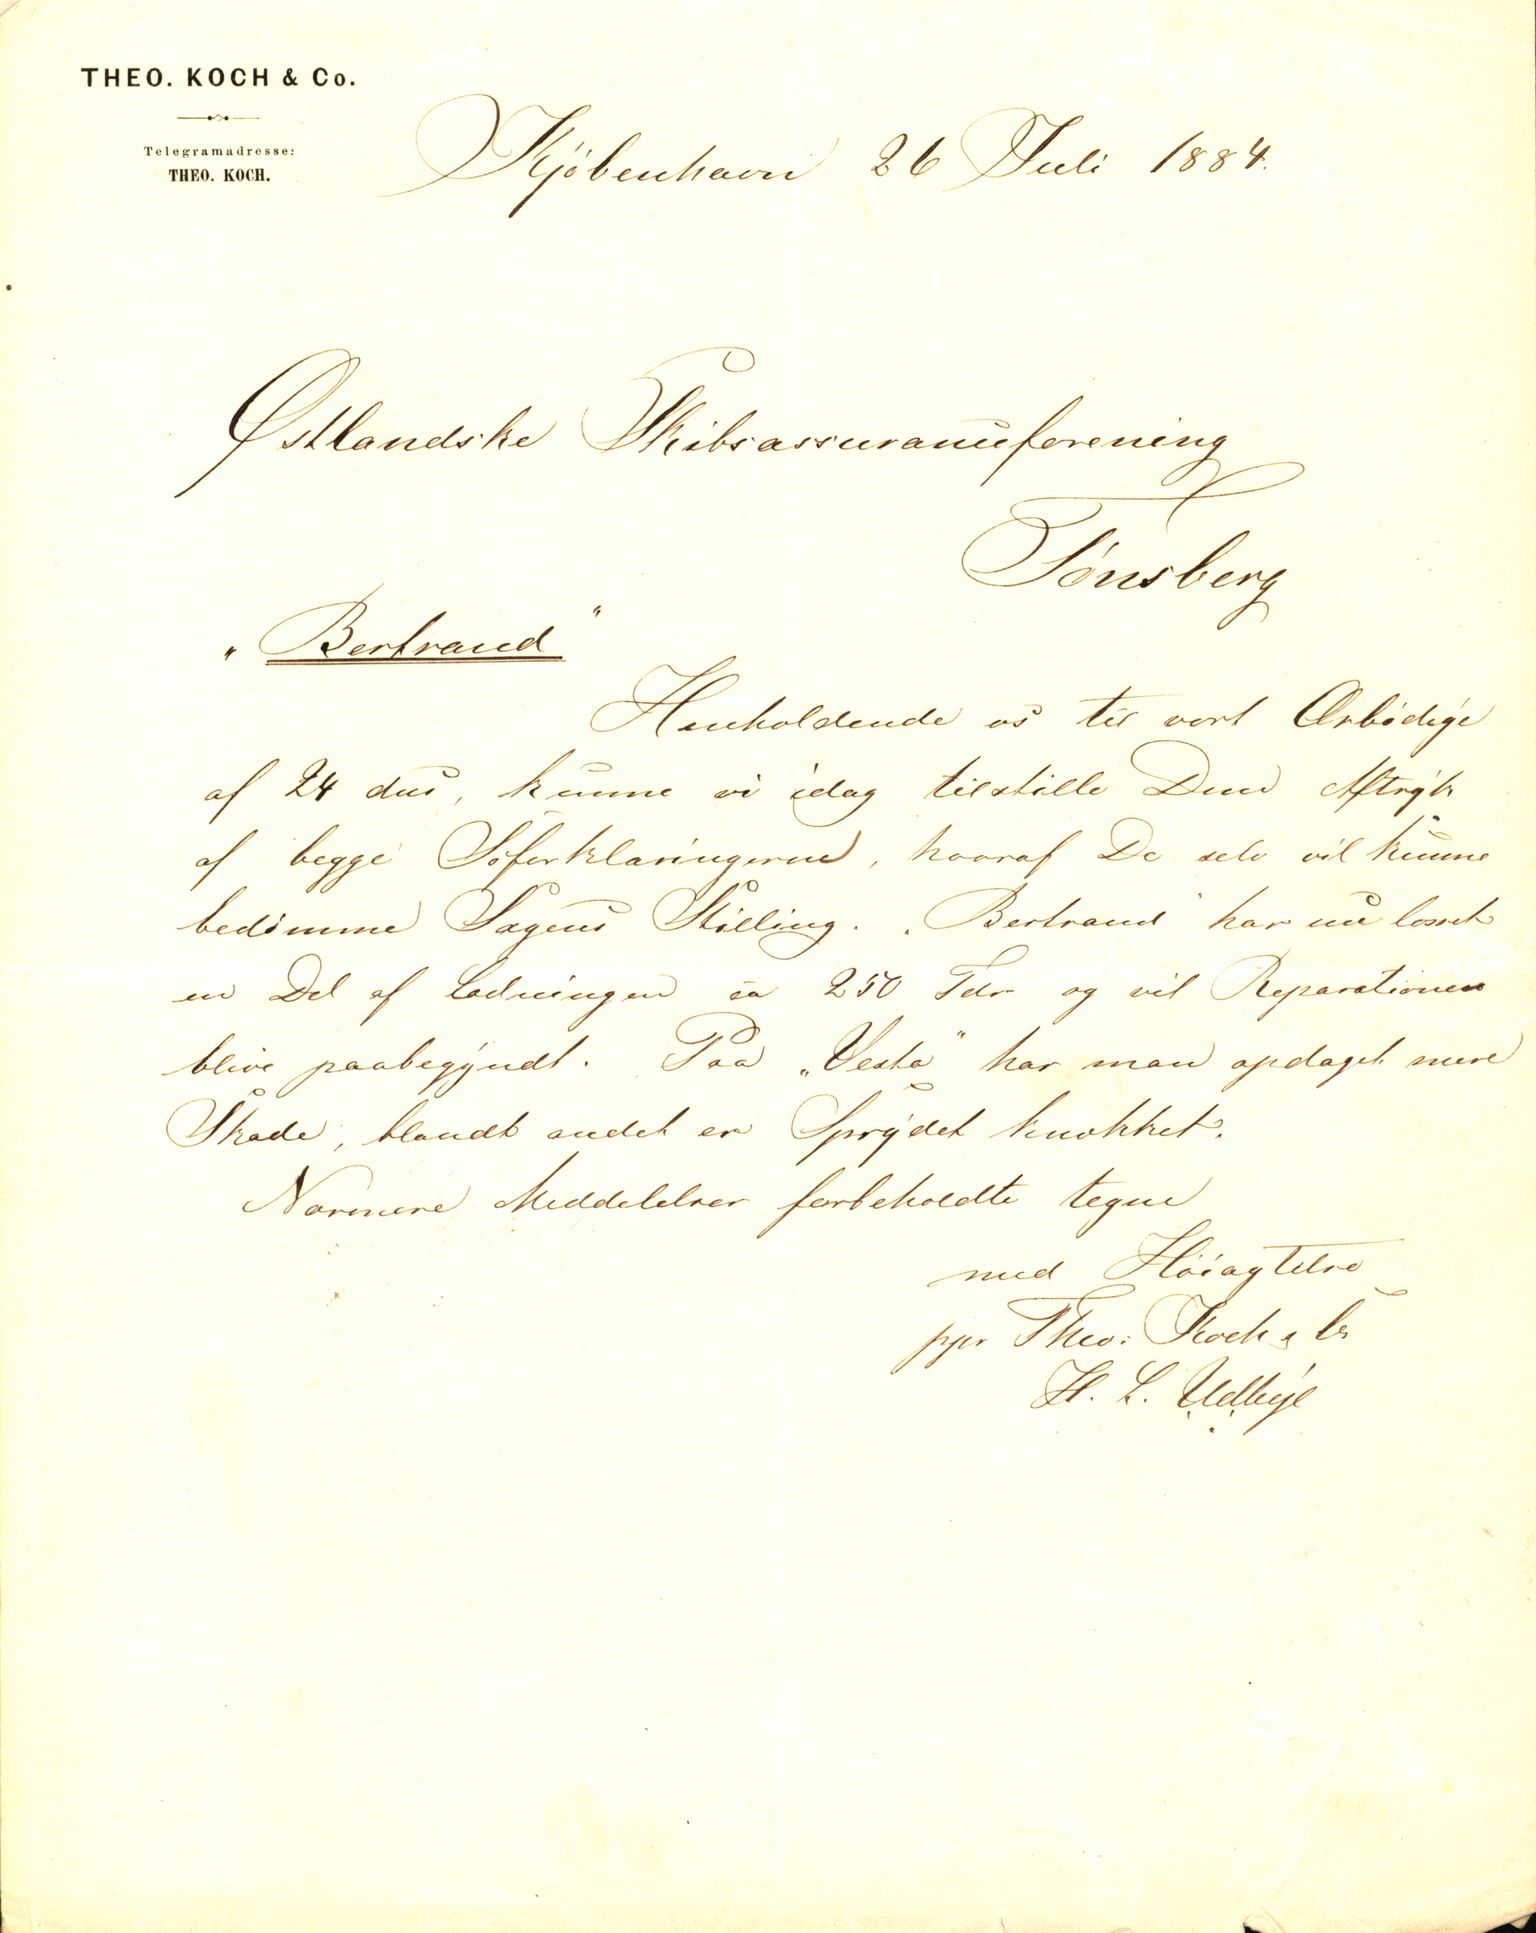 THEO. KOCH & Co.
Telegramadresse:
THEO. KOCH.
Kjöbenhavn 26 Juli 1884.
Østlandske Skibsassuranceforening
Tönsberg
„Bertrand"
Henholdende os til vort Ærbödige
af 24 dns, kunne vi idag tilstille Dem Aftryk
af begge Söforklaringerne, hvoraf De selv vil kunne
bedömme Sagens Stilling. „Bertrand" har nu losset
en Del af Ladningen ca 250 Tdr og vil Reparationen
blive paabegyndt. Paa „Vesta" har man opdaget mere
Skade, blandt andet er Sprydet knækket.
Nærmere Meddelelser forbeholdte tegne
med Höiagtelse
ppr Theo: Koch & Co
H. L.